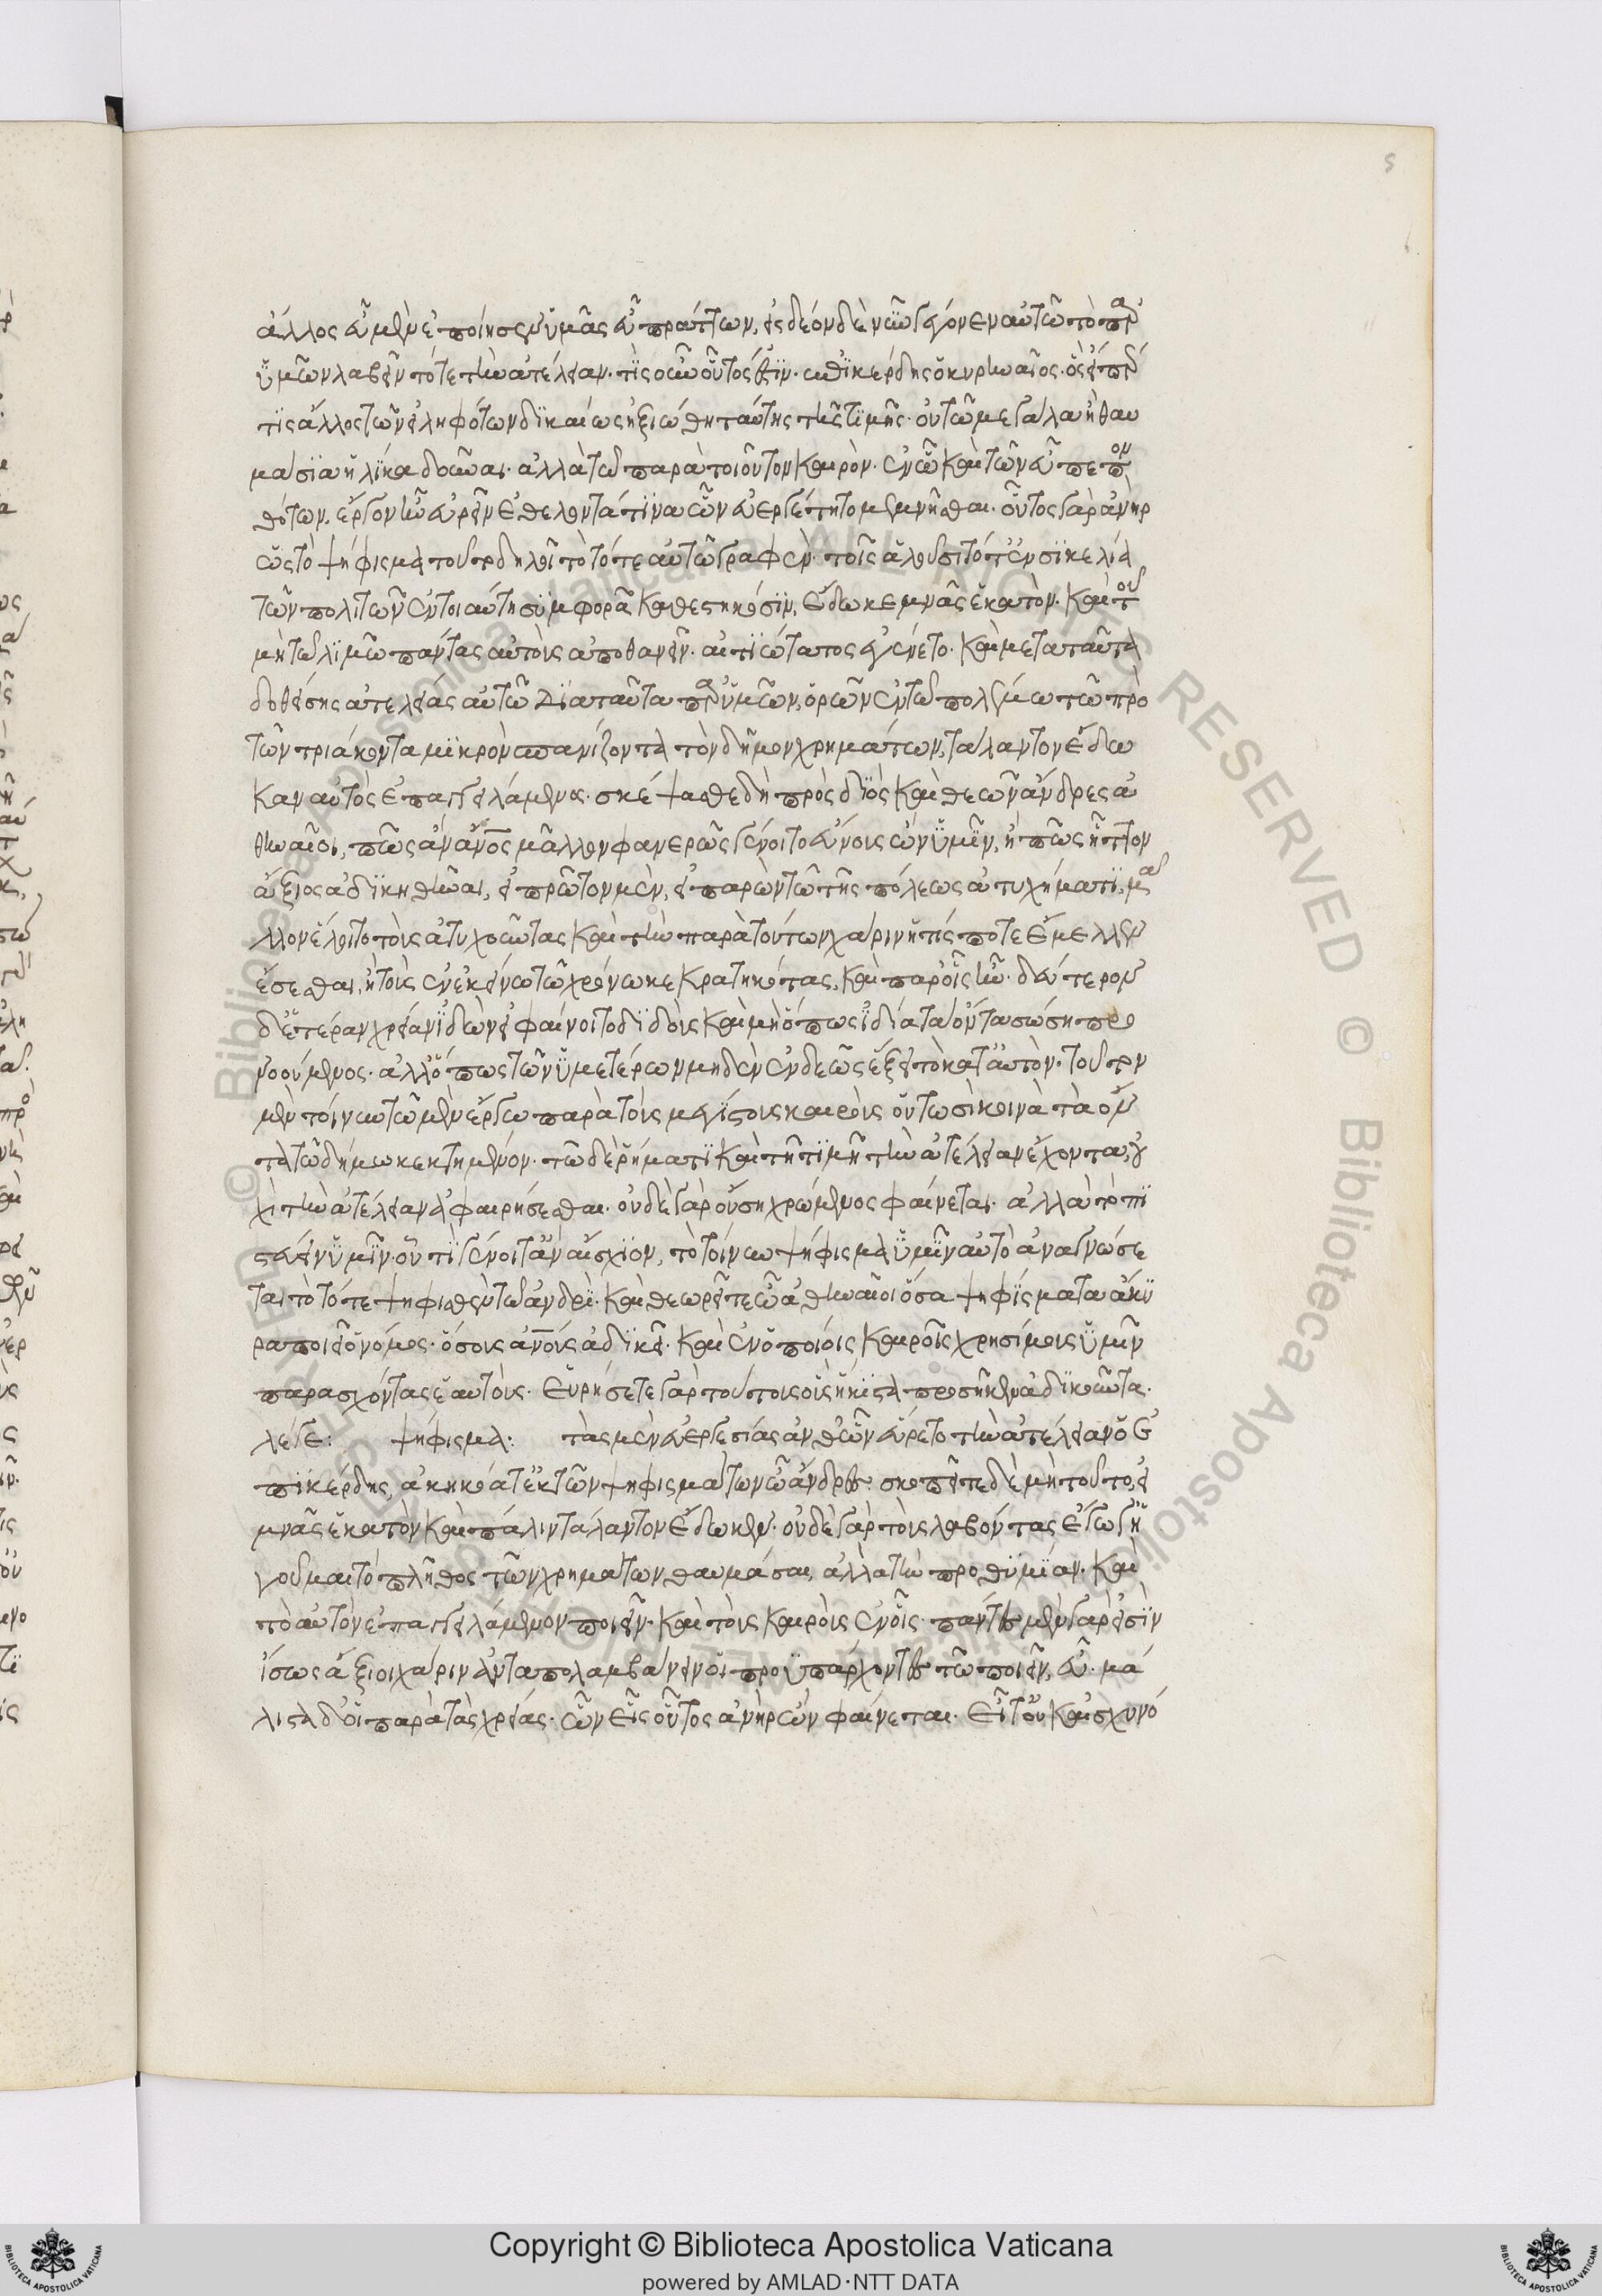 ἄλλος εὖ μὲν ἐποίησεν ὑμᾶς εὖ πράττων, εἰς δέον δὲ νῦν γέγονεν αὐτῶ τὸ παρ'
ὑμῶν λαβεῖν τότε τὴν ἀτέλειαν. τίς οὖν οὗτός ἐστιν. ἐπικέρδης ὁ κυρηναῖος. ὃς εἴπερ
τις ἄλλος τῶν εἰληφότων δικαίως ἠξιώθη ταύτης τῆς τιμῆς. οὐ τῶ μεγάλα ἢ θαυ
μάσια ἡλίκα δοῦναι. ἀλλὰ τῶ παρὰ τοιοῦτον καιρὸν. ἐν ὧ καὶ τῶν εὖ πεπον
θότων, ἔργον ἦν εὑρεῖν ἐθέλοντά τινα ὧν εὐεργέτητο μεμνῆσθαι. οὗτος γὰρ ἀνὴρ
ὡς τὸ ψήφισμα τοῦτο δηλοῖ τὸ τότε αὐτῶ γραφὲν. τοῖς ἁλοῦσι τότ' ἐν σικελία
τῶν πολιτῶν ἐν τοιαύτη συμφορᾶ καθεστηκόσιν, ἔδωκε μνᾶς ἑκατὸν. καὶ τοῦ
μὴ τῶ λιμῶ πάντας αὐτοὺς ἀποθανεῖν. αἰτιώτατος ἐγένετο. καὶ μετα ταῦτα
δοθείσης ἀτελείας αὐτῶ διὰ ταῦτα παρ' ὑμῶν, ὁρῶν ἐν τῶ πολέμω τῶ πρὸ
τῶν τριάκοντα μικρὸν σπανίζοντα τὸν δῆμον χρημάτων, τάλαντον ἔδω
κεν αὐτὸς ἐπαγγειλάμενος. σκέψασθε δὴ πρὸς διὸς καὶ θεῶν ἄνδρες ἀ
θηναῖοι, πῶς ἂν ἄνος μᾶλλον φανερῶς γένοιτο εὔνοις ὢν ὑμῖν, ἢ πῶς ἧττον
ἄξιος ἀδικηθῆναι, εἰ πρῶτον μὲν, εἰ παρὼν τῶ τῆς πόλεως ἀτυχήματι, μᾶ
λλον ἕλοιτο τοὺς ἀτυχοῦντας καὶ τὴν παρὰ τούτων χάριν ἥτις ποτε ἔμελλεν
ἔσεσθαι, ἢ τοὺς ἐν ἐκείνω τῶ χρόνω κεκρατηκότας, καὶ παρ' οἷς ἦν. δεύτερον
δ' ἑτέραν χρείαν ἰδὼν εἰ φαίνοιτο διδοὺς καὶ μὴ ὅπως ἰδία τὰ ὄντα σώση προ
νοούμενος. ἀλλ' ὅπως τῶν ὑμετέρων μηδὲν ἐνδεῶς ἕξει τὸ κατ' αὐτὸν. τοῦτον
μὲν τοίνυν τῶ μὲν ἔργω παρὰ τοὺς μεγίστους καιροὺς οὕτωσὶ κοινὰ τὰ ὄν
τα τῶ δήμω κεκτημένον. τῶ δὲ ῥήματι καὶ τῆ τιμῆ τὴν ἀτέλειαν ἔχοντα, οὐ
χὶ τὴν ἀτέλειαν ἀφαιρήσεσθαι. οὐδὲ γὰρ οὔση χρώμενος φαίνεται. ἀλλὰ τὸ πι
στεύειν ὑμῖν. οὗ τί γένοιτ' ἂν αἴσχιον, τὸ τοίνυν ψήφισμα ὑμῖν αὐτὸ ἀναγνώσε
ται τὸ τότε ψηφισθὲν τῶ ἀνδρὶ. καὶ θεωρεῖτε ὦ ἀθηναῖοι ὅσα ψηφίσματα ἄκυ
ρα ποιεῖ ὁ νόμος. ὅσους ἀνοὺς ἀδικεῖ. καὶ ἐν ὁποίοις καιροῖς χρησίμους ὑμῖν
παρασχόντας ἑαυτοὺς. εὑρήσετε γὰρ τούτους οὓς ἥκιστα προσῆκεν ἀδικοῦντα.
λέγε: ψήφισμα: τὰς μὲν εὐεργεσίας ἀνθ' ὧν εὕρετο τὴν ἀτέλειαν ὁ ἐ
πικέρδης, ἀκηκόατ' ἐκ τῶν ψηφισμάτων ὦ ἄνδρες. σκοπεῖτε δὲ μὴ τοῦτο, εἰ
μνᾶς ἑκατὸν καὶ πάλιν τάλαντον ἔδωκεν. οὐδὲ γὰρ τοὺς λαβόντας ἔγωγ' ἡ
γοῦμαι τὸ πλῆθος τῶν χρημάτων θαυμάσαι, ἀλλὰ τὴν προθυμίαν. καὶ
τὸ αὐτὸν ἐπαγγειλάμενον ποιεῖν. καὶ τοὺς καιροὺς ἐν οἷς. πάντες μὲν γάρ εἰσιν
ἴσως ἄξιοι χάριν ἀνταπολαμβάνειν οἱ προϋπάρχοντες τῶ ποιεῖν, εὖ. μά
λιστα δ' οἱ παρὰ τὰς χρείας. ὧν εἷς οὗτος ἀνὴρ ὢν φαίνεται. εἶτ' οὐκ αἰσχυνό